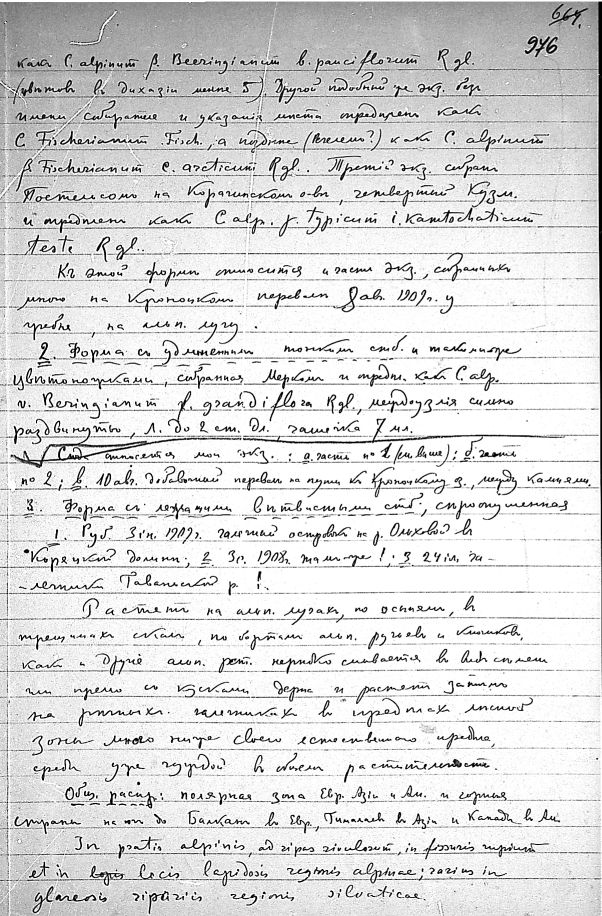 664.
976
какъ C. alpinum β. Beeringianum b. pauciflorum Rgl.
(цвѣтовъ въ дихазіи менѣе 5). Другой подобный же экз. безъ
имени собирателя и указанія мѣста опредѣленъ какъ
C Fischerianum Fisch., а позднѣе какъ C. alpinum
β Fischerianum c. arcticum Rgl.. Третій экз. собранъ
на Карагинскомъ о-вѣ, четвертый Кузм.
и опредѣленъ какъ C alp. γ. typicum i. kamtschaticum
teste Rgl..
Къ этой формѣ относится и часть экз., собранныхъ
мною на Кроноцкомъ перевалѣ 8 авг. 1909 г. у
гребня, на альп. лугу.
2. Форма съ удлиненнымъ тонкимъ стб. и такими же
цвѣтоножками, собранная Меркомъ и опредѣл. какъ C. alp.
v. Beringianum f. grandiflora Rgl., междоузлія сильно
раздвинуты, л. до 2 cm. дл., чашечка 7 мл.
Сюда относятся мои экз.: a. часть № 1 (см. выше); б. часть
№ 2; в 10 авг. добавочный перевалъ на пути къ Кроноцкому з., между камнями.
3. Форма съ лежачими вѣтвистыми стб,
1. 1909 г. галечный островокъ на р. Ольховой въ
Корецкой долинѣ; 2 1908 г. тамъ же!; 3 24 га-
-лечники р !.
Растетъ на альп. лугахъ, по осыпямъ, въ
трещинахъ скалъ, по бортамъ альп. ручьевъ и ключиковъ,
какъ и другіе альп. раст. нерѣдко смывается въ видѣ сѣмянъ
или прямо съ кусками дерна и растетъ затѣмъ
на рѣчныхъ галечникахъ въ предѣлахъ лѣсной
зоны много ниже своего естественнаго предѣла,
среди уже чуждой въ общемъ растительности.
Общ. распр.: полярная зона Евр. Азіи и Ам. и горныя
страны на югъ до Балканъ въ Евр., Гималаевъ въ Азіи и Канады въ Ам.
In pratis alpinis, ad ripas rivulorum, in fissuris rupium
et in locis lapidosis regionis alpinae; rarius in
glareosis ripariis regionis silvaticae.